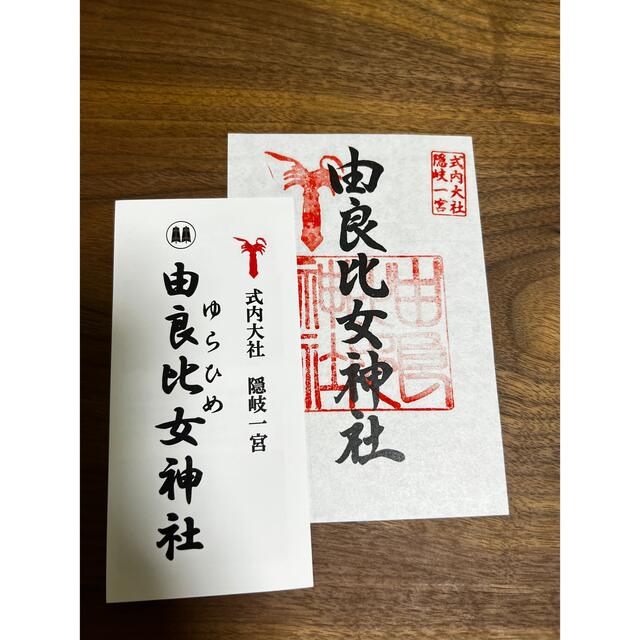 式内大社　隠岐一宮
由良比女神社
ゆらひめ
式内大社
隠岐一宮
由良比女神社
由良
神社